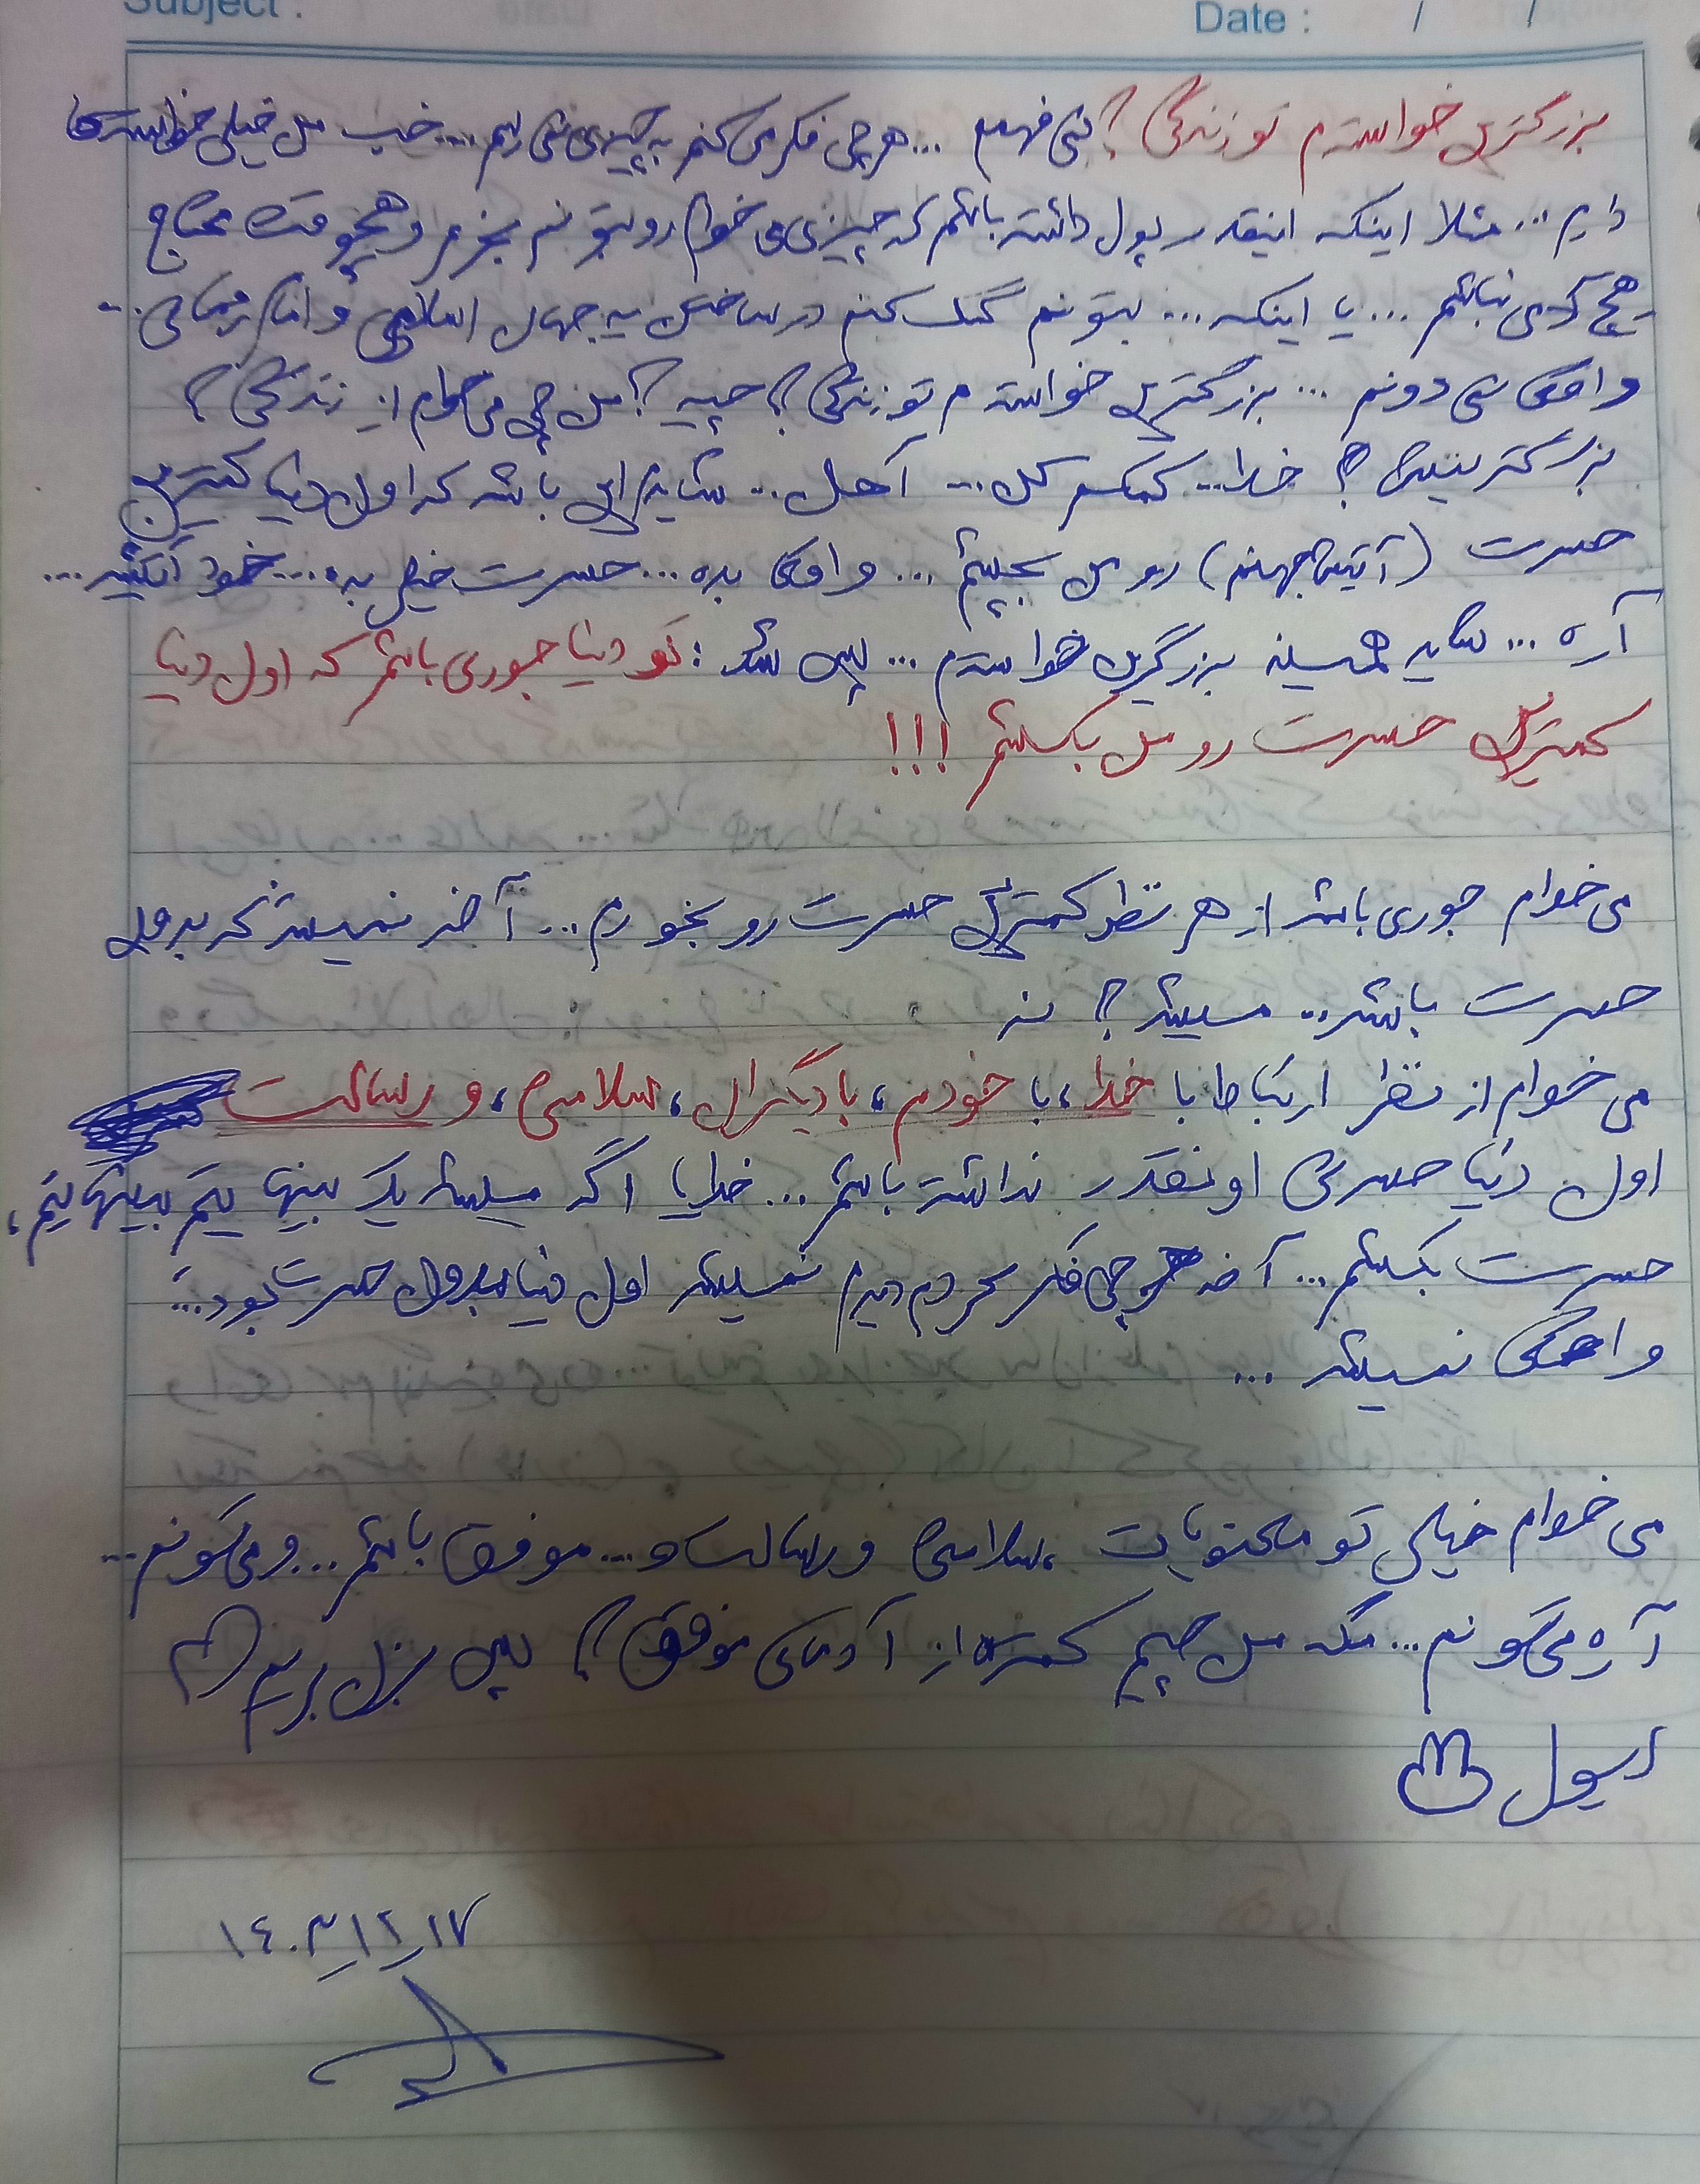 Subject :
Date : / /
بزرگترین خواسته م تو زندگی؟ نمی فهمم ... هر چی فکر می کنم به چیزی نمی رسم ... خب من خیلی خواسته ها
دارم ... مثلا اینکه اینقدر پول داشته باشم که چیزی می خوام رو بتونم بخرم و هیچوقت محتاج
هیچ آدمی نباشم ... یا اینکه ... بتونم کمک کنم در ساختن یه جهان اسلامی و امام زمانی ...
واقعا نمی دونم ... بزرگترین خواسته م تو زندگی؟ چیه؟ من چی می خوام از زندگی؟
بزرگترینش؟ خدا... کمکم کن ... آهان .. شاید این باشه که اون دنیا کمترین
حسرت (آتیش جهنم) رو من بچشم ... واقعا بده ... حسرت خیلی بده ... خود آتیشه ...
آره ... شاید همینه بزرگترین خواستم ... پس شد: تو دنیا جوری باشم که اون دنیا
کمترین حسرت رو من بکشم !!!
می خوام جوری باشه از هر نظر کمترین حسرت رو بخورم ... آخه نمیشه که بدون
حسرت باشه .. میشه؟ نه
می خوام از نظر ارتباط با خدا، با خودم، با دیگران، سلامتی، و رسالت
اون دنیا حسرتی اونقدر نداشته باشم ... خدایا اگه میشه یک بینهایتم بینهایتم،
حسرت بکشم ... آخه هر چی فکر کردم دیدم نمیشه اون دنیا بدون حسرت بود ...
واقعا نمیشه ...
می خوام خیلی تو معنویات، سلامتی و رسالت و ... موفق باشم ... و می تونم ...
آره می تونم ... مگه من چیم کمتره از آدمای موفق؟ پس بزن بریم
رسول
۱۴۰۳/۱۲/۱۷